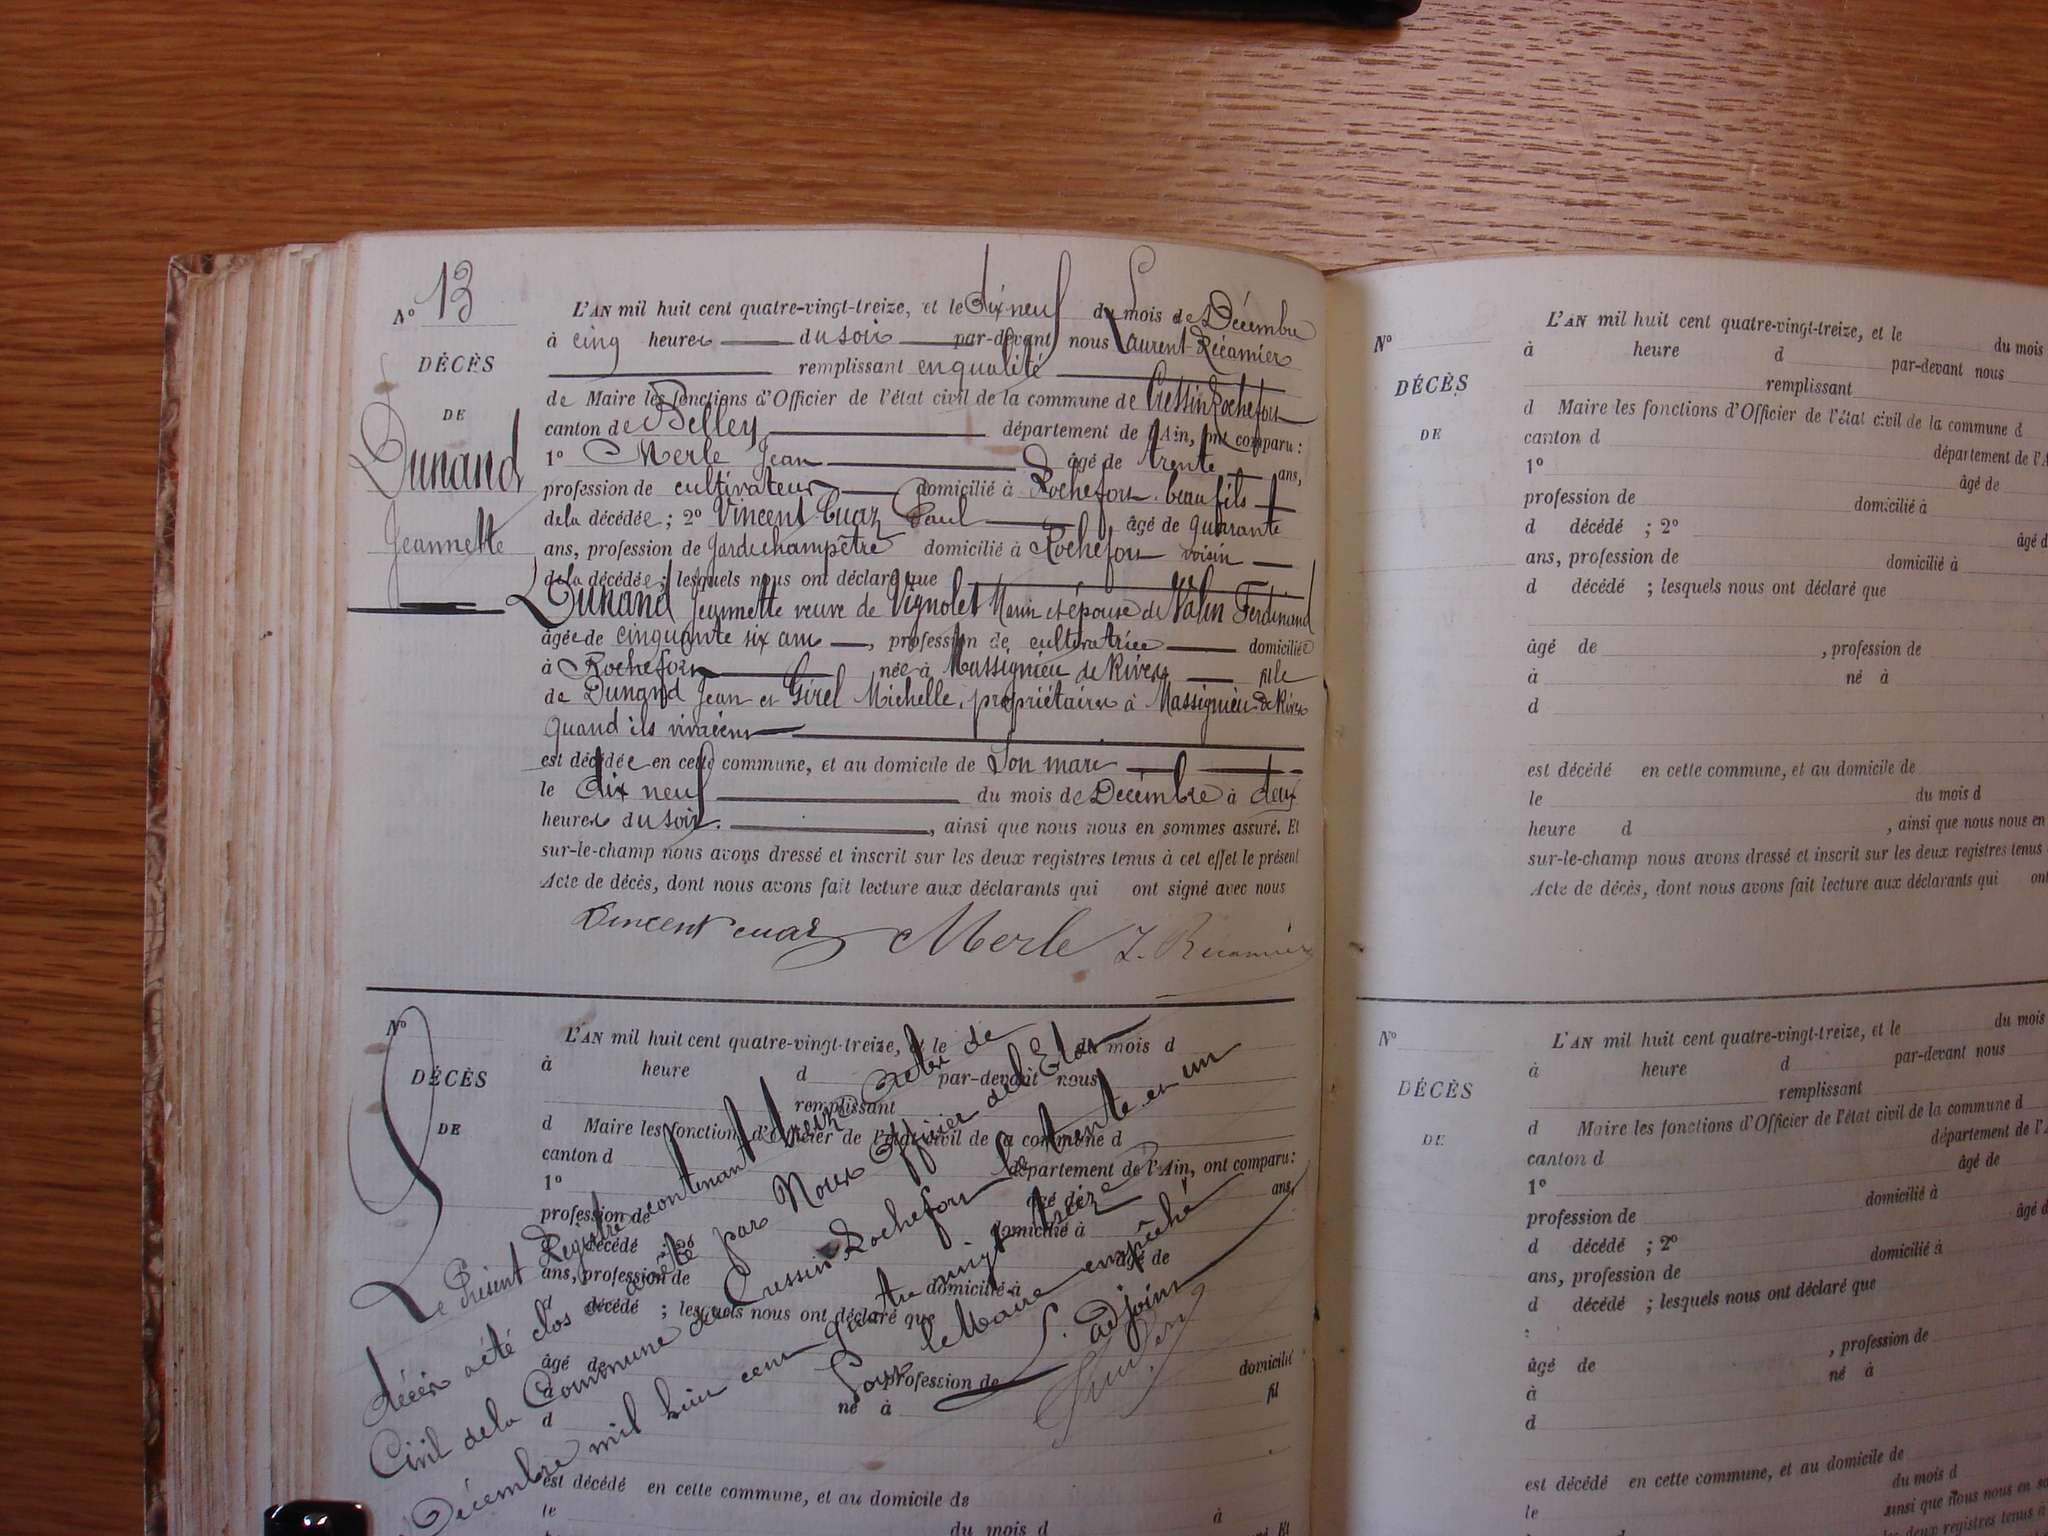 N° 13
DÉCÈS
DE
Dunand
Jeannette
L'AN mil huit cent quatre-vingt-treize, et le dix neuf du mois de Décembre
à cinq heures du soir par-devant nous Laurent Récamier
remplissant en qualité
de Maire les fonctions d'Officier de l'état civil de la commune de Cressin Rochefort
canton de Belley département de l'Ain, ont comparu :
1° Merle Jean âgé de trente ans,
profession de cultivateur domicilié à Rochefort beau fils
de la décédée ; 2° Vincent Cuaz Paul âgé de quarante
ans, profession de garde champêtre domicilié à Rochefort voisin
de la décédée ; lesquels nous ont déclaré que
Dunand Jeannette veuve de Vignolet Marin et épouse de Valin Ferdinand
âgée de cinquante six ans , profession de cultivatrice domiciliée
à Rochefort née à Massignieu de Rives fille
de Dunand Jean et Girel Michelle, propriétaires à Massignieu-de Rives
quand ils vivaient
est décédée en cette commune, et au domicile de Son mari
le dix neuf du mois de Décembre à deux
heures du soir. , ainsi que nous nous en sommes assuré. Et
sur-le-champ nous avons dressé et inscrit sur les deux registres tenus à cet effet le présent
Acte de décès, dont nous avons fait lecture aux déclarants qui ont signé avec nous
Vincent cuaz Merle L. Récamier
N°
DÉCÈS
DE
L'AN mil huit cent quatre-vingt-treize, et le du mois d
à heure d par-devant nous
remplissant
d Maire les fonctions d'Officier de l'état civil de la commune d
canton d département de l'Ain, ont comparu :
1° âgé de ans,
profession de domicilié à
d décédé ; 2° âgé de
ans, profession de domicilié à
d décédé ; lesquels nous ont déclaré que
âgé de profession de domicilié
à né à fil
d
est décédé en cette commune, et au domicile de
le du mois d à
Et
Le Présent Registre contenant treize actes de
décès a été clos et arrêté par Nous Officier de l'Etat
Civil de la Commune de Cressin Rochefort le trente en un
Décembre mil huit cent quatre vingt treize
Pour le Maire empêché
L. adjoint
N°
DÉCÈS
DE
L'AN mil huit cent quatre-vingt-treize, et le du mois
à heure d par-devant nous
remplissant
d Maire les fonctions d'Officier de l'état civil de la commune d
canton d département de l'A
1° âgé de
profession de domicilié à
d décédé ; 2° âgé d
ans, profession de domicilié à
d décédé ; lesquels nous ont déclaré que
âgé de , profession de
à né à
d
est décédé en cette commune, et au domicile de
le du mois d
heure d , ainsi que nous nous en
sur-le-champ nous avons dressé et inscrit sur les deux registres tenus
Acte de décès, dont nous avons fait lecture aux déclarants qui ont
N°
DÉCÈS
DE
L'AN mil huit cent quatre-vingt-treize, et le du mois
à heure d par-devant nous
remplissant
d Maire les fonctions d'Officier de l'état civil de la commune d
canton d département de l'A
1° âgé de
profession de domicilié à
d décédé ; 2° âgé d
ans, profession de domicilié à
d décédé ; lesquels nous ont déclaré que
:
âgé de , profession de
à né à
d
est décédé en cette commune, et au domicile de
le du mois d
ainsi que nous nous en so
les deux registres tenus à